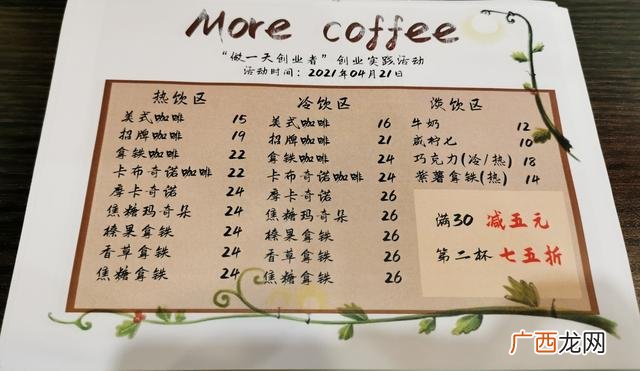 More coffee
“做一天创业者”创业实践活动
活动时间：2021年04月21日
热饮区
美式咖啡 15
招牌咖啡 19
拿铁咖啡 22
卡布奇诺咖啡 22
摩卡奇诺 24
焦糖玛奇朵 24
榛果拿铁 24
香草拿铁 24
焦糖拿铁 24
冷饮区
美式咖啡 16
招牌咖啡 21
拿铁咖啡 24
卡布奇诺咖啡 24
摩卡奇诺 26
焦糖玛奇朵 26
榛果拿铁 26
香草拿铁 26
焦糖拿铁 26
淡饮区
牛奶 12
咸柠七 10
巧克力(冷/热) 18
紫薯拿铁(热) 14
满30 减五元
第二杯 七五折
广西龙网